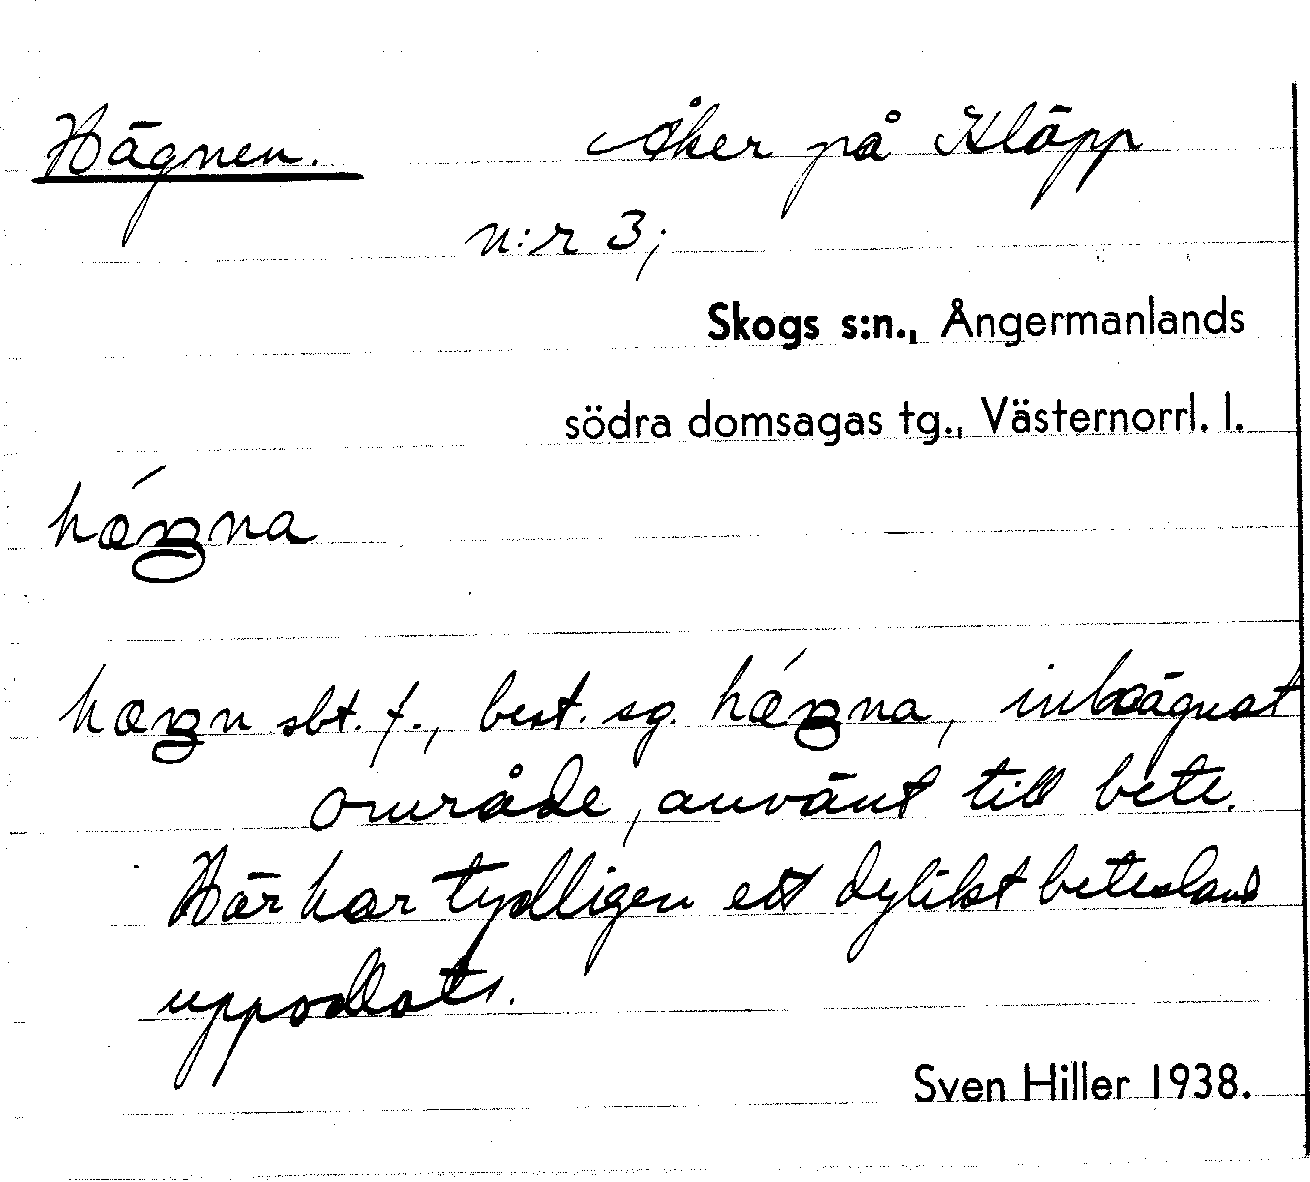 Hägnen. Åker på Kläpp
n:r 3;
Skogs s:n., Ångermanlands
södra domsagas tg., Västernorrl. l.
hǽŋna
hæŋn sbt. f., best. sg. hǽŋna, inhägnat
område, använt till bete.
Här har tydligen ett dylikt betesland
uppodlats.
Sven Hiller 1938.